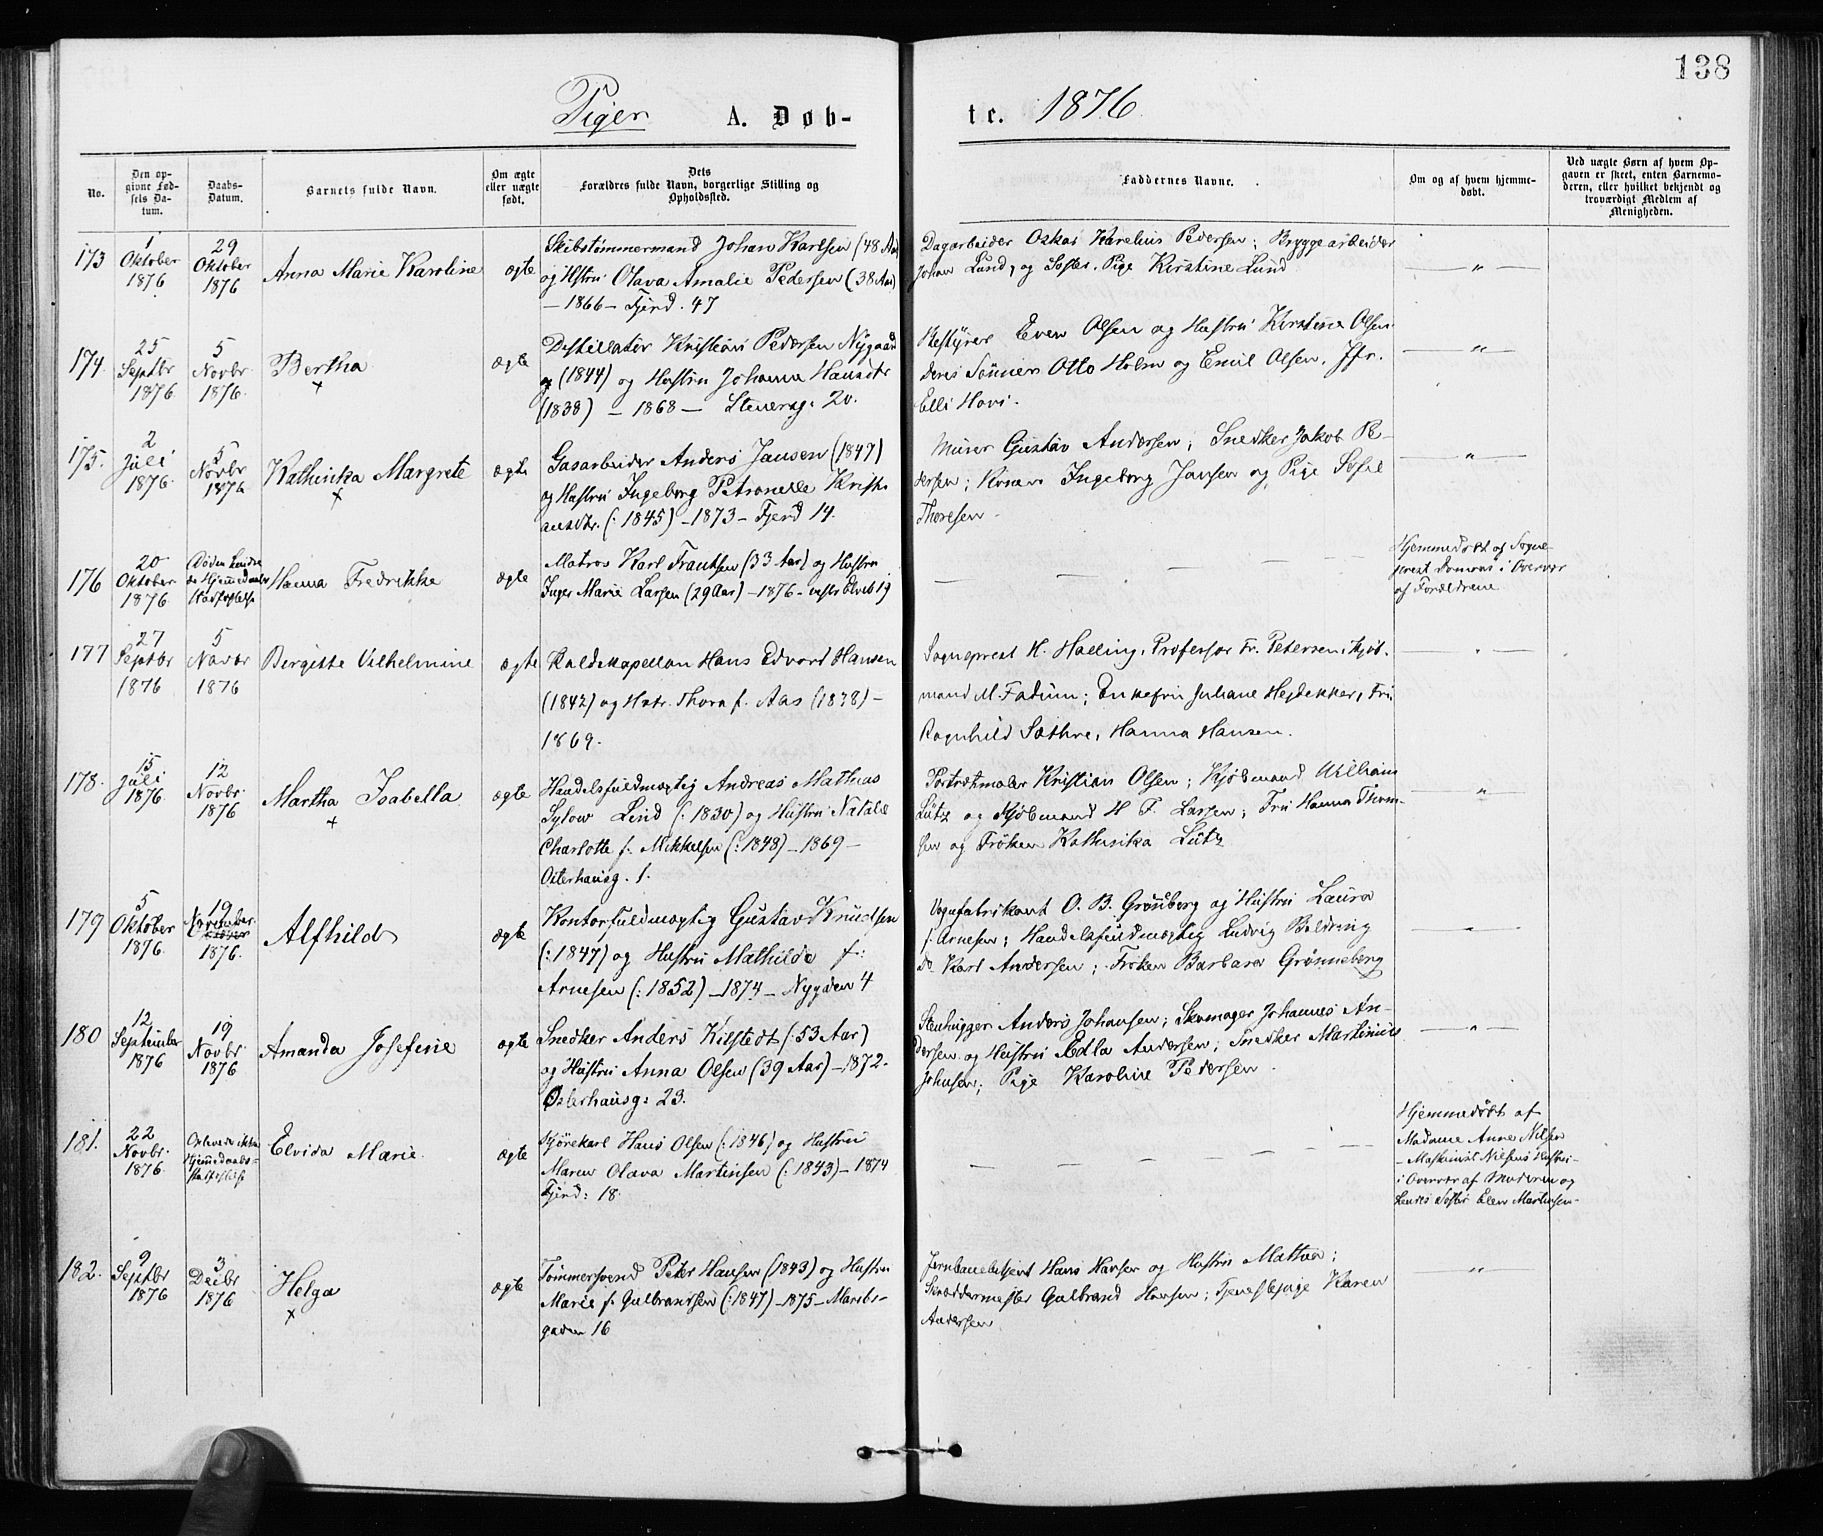 138
Piger A. Døb-
te. 1876
No.
Den op-
givne Fød-
sels Da-
tum.
Daabs-
Datum.
Barnets fulde Navn.
Om ægte
eller uægte
født.
Dets
Forældres fulde Navn, borgerlige Stilling og
Opholdssted.
Faddernes Navne.
Om og af hvem hjemme-
døbt.
Ved uægte Børn af hvem Op-
gaven er skeet, enten Barnemo-
deren, eller hvilket bekjendt og
troværdigt Medlem af
Menigheden.
173
1
Oktober
1876
29
Oktober
1876
Anna Marie Karoline
ægte
Skibstømmermand Johan Karlsen (48 Aar)
og Hstru Olava Amalie Pedersen (38 Aar)
— 1866 — Fjerd. 47
Dagarbeider Oskar Karelius Pedersen; Bryggearbeider
Johan Lund, og Søster, Pige Kirstine Lund
— " —
174.
25
Septbr
1876
5
Novbr.
1876.
Bertha
×
ægte
Destillatør Kristian Pedersen Nygaard
(1844) og Hustru Johanna Hansdtr
(1838) — 1868 — Stenersg: 20.
Bestyrer Even Olsen og Hustru Kirstine Olsen
deres Sønner Otto Holm og Emil Olsen. Jfr.
Elli Hovi.
— " —
175.
2
Juli
1876.
5
Novbr
1876
Kathinka Margrete
×
ægte
Gasarbeider Anders Jansen (1847)
og Hustru Ingeborg Petronelle Kristi
ansdtr. (: 1845) — 1873 — Fjerd 14.
Murer Gustav Andersen; Snedker Jakob Pe-
dersen; Ingeborg Jansen og Pige Sofie
Thoresen
— " —
176
20
Oktober
1876
Hjemmedaabs
Hanna Fredrikke
ægte
Matros Karl Frantsen (33 Aar) og Hustru
Inger Marie Larsen (29 Aar) — 1876 — 19
— — — — —
Hjemmedøbt af Sogne-
prest i Overvær
af Forældrene
177
27
Septbr
1876
5
Novbr
1876
Birgitte Vilhelmine
ægte
Resid. kapellan Hans Edvard Hansen
(1842) og Hstr. Thora f. Aas (1838) —
1869.
Sogneprest H. Halling, Professor Fr. Petersen, Kjøb-
mand M. Fadum; Enkefru Juliane Hejdekker, Fru
Ragnhild Sæthre, Hanna Hansen.
— " —
178.
15
Juli
1876
12
Novbr.
1876
Martha Isabella
×
ægte
Handelsfuldmægtig Andreas Mathias
Sylow Lind (: 1830) og Hustru Natalie
Charlotte f. Mikkelsen (: 1848) — 1869 —
Osterhausg. 1.
Portrætmaler Kristian Olsen; Kjøbmand William
Lütz og Kjøbmand H. F. Larsen; Fru Hanna Thom-
sen og Frøken Kathinka Lütz
— " —
179
5
Oktober
1876
19
November
1876.
Alfhild
ægte
Kontorfuldmægtig Gustav Knudsen
(: 1847) og Hustru Mathilde f.:
Arnesen (: 1852) — 1874 — Nygaden 4
Vognfabrikant O. B. Grønberg og Hustru Laura
f. Arnesen; Handelsfuldmægtig Ludvig Boldring
do Karl Andersen; Frøken Barbara Grønneberg
— " —
180
12
September
1876
19
Novbr.
1876
Amanda Josefine
ægte
Snedker Anders Kilstedt (: 53 Aar)
og Hustru Anna Olsen (39 Aar) — 1872.
Østerhausg: 23.
Stenhugger Anders Johansen; Skomager Johannes An-
dersen og Hustru Edla Andersen; Snedker Martinius
Johnsen; Pige Karoline Pedersen.
— " —
181.
22
Novbr.
1876
Oplevede ikke
Hjemmedaabs-
stadfæstelse
Elvida Marie.
ægte
Kjørekarl Hans Olsen (: 1846) og Hustru
Maren Olava Martinsen (: 1843) — 1874
Fjerd: 18.
— — — — —
Hjemmedøbt af
Madame Anne Nilsen
— Maskinist Nilsens Hustru —
i Overvær af Moderen og
hendes Søster Elen Martinsen.
182.
9
Septbr
1876
3
Decbr
1876
Helga
×
ægte
Tømmersvend Peter Hansen (1843) og Hustru
Marie f. Gulbrandsen (: 1847) — 1875 — Mariboe-
gaden 16
Jernbanebetjent Hans Hansen og Hustru Mathea;
Skræddermester Gulbrand Hansen; Tjenestepige Karen
Andersen
— " —